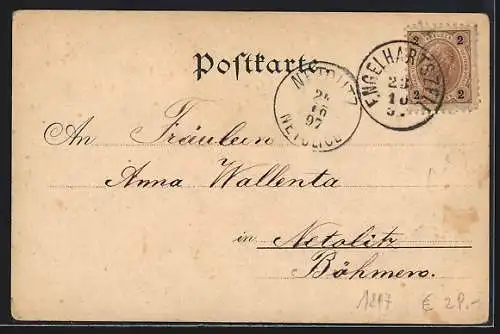 Postkarte
2 2
2 2
ENGELHARTSZELL
23
10
NETOLITZ
24
10
97
NETOLICE
An Fräulein
Anna Wallenta
in Netolitz
Böhmen.
1897 € 29.-